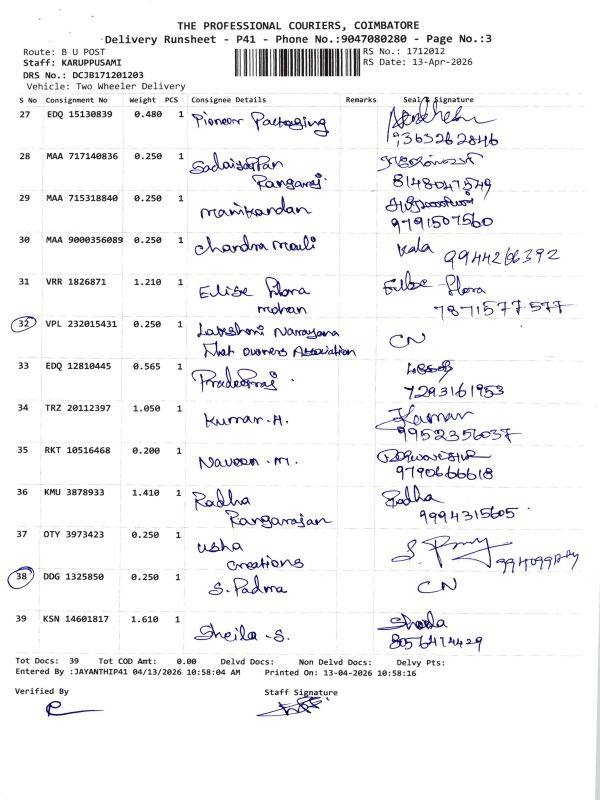 THE PROFESSIONAL COURIERS, COIMBATORE
Delivery Runsheet - P41 - Phone No.:9047080280 - Page No.:3
Route: B U POST RS No.: 1712012
Staff: KARUPPUSAMI RS Date: 13-Apr-2026
DRS No.: DCJB171201203
Vehicle: Two Wheeler Delivery
S No Consignment No Weight PCS Consignee Details Remarks Seal & Signature
27 EDQ 15130839 0.480 1 Pioneer Packaging
9363262846
28 MAA 717140836 0.250 1 Sadaiyappan
Rangaraj. 8148047549
29 MAA 715318840 0.250 1 Manikandan
9791507560
30 MAA 9000356089 0.250 1 Chandra mouli Kala 9944266392
31 VRR 1826871 1.210 1 Elise flora Elise flora
mohan 7871577577
32 VPL 232015431 0.250 1 Lakshmi Narayana CN
flat owners Association
33 EDQ 12810445 0.565 1 Pradeepraj.
7293161953
34 TRZ 20112397 1.050 1 Kumar.A. Kumar
9952356037
35 RKT 10516468 0.200 1 Naveen.M.
9790666618
36 KMU 3878933 1.410 1 Radha Radha
Rangarajan 9994315605
37 OTY 3973423 0.250 1 Usha
Creations
38 DDG 1325850 0.250 1 S.Padma CN
39 KSN 14601817 1.610 1 Sheila-S. Sheila
8056474429
Tot Docs: 39 Tot COD Amt: 0.00 Delvd Docs: Non Delvd Docs: Delvy Pts:
Entered By :JAYANTHIP41 04/13/2026 10:58:04 AM Printed On: 13-04-2026 10:58:16
Verified By Staff Signature